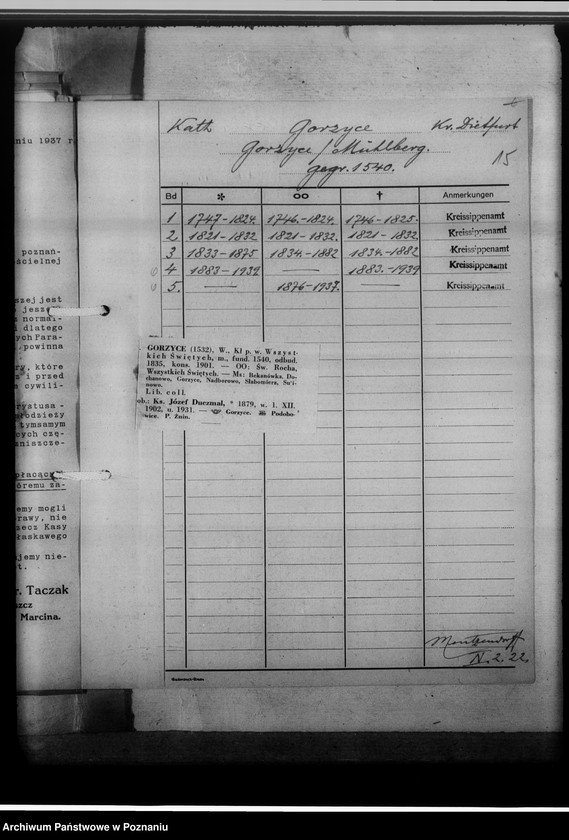 niu 1937 r
poznań-
ścielnej
szej jest
jeszc
normal-
i dlatego
ych Para-
powinna
ry, które
i przed
cywili-
rystusa -
łodzieży
tymsamym
ących czę-
aniszcze-
płacąc
óremu za-
emy mogli
rawy, nie
rzecz Kasy
łaskawego
jemy nie-
t.
r. Taczak
szcz
Marcina.
Kath Gorzyce Kr. Dietfurt
Gorzyce / Mühlberg.
gegr. 1540.
15
Bd * ∞ † Anmerkungen
1 1747-1824 1746-1824. 1746-1825. Kreissippenamt
2 1821-1832 1821-1832. 1821-1832 Kreissippenamt
3 1833-1875 1834-1882 1834-1882 Kreissippenamt
4 1883-1939 — 1883-1939 Kreissippenamt
5. — 1876-1937. Kreissippenamt
GORZYCE (1532), W., Kl p. w. Wszyst-
kich Świętych, m., fund. 1540, odbud.
1835, kons. 1901. — OO: Św. Rocha,
Wszystkich Świętych. — Ms: Bekanówka, Do-
chanowo, Gorzyce, Nadborowo, Słabomierz,
nowo.
Lib. coll.
ob.: Ks. Józef Duczmal, * 1879, w. 1. XII.
1902, n. 1931. — Gorzyce. Podobo-
wice. P. Żnin.
2. 22.
Archiwum Państwowe w Poznaniu